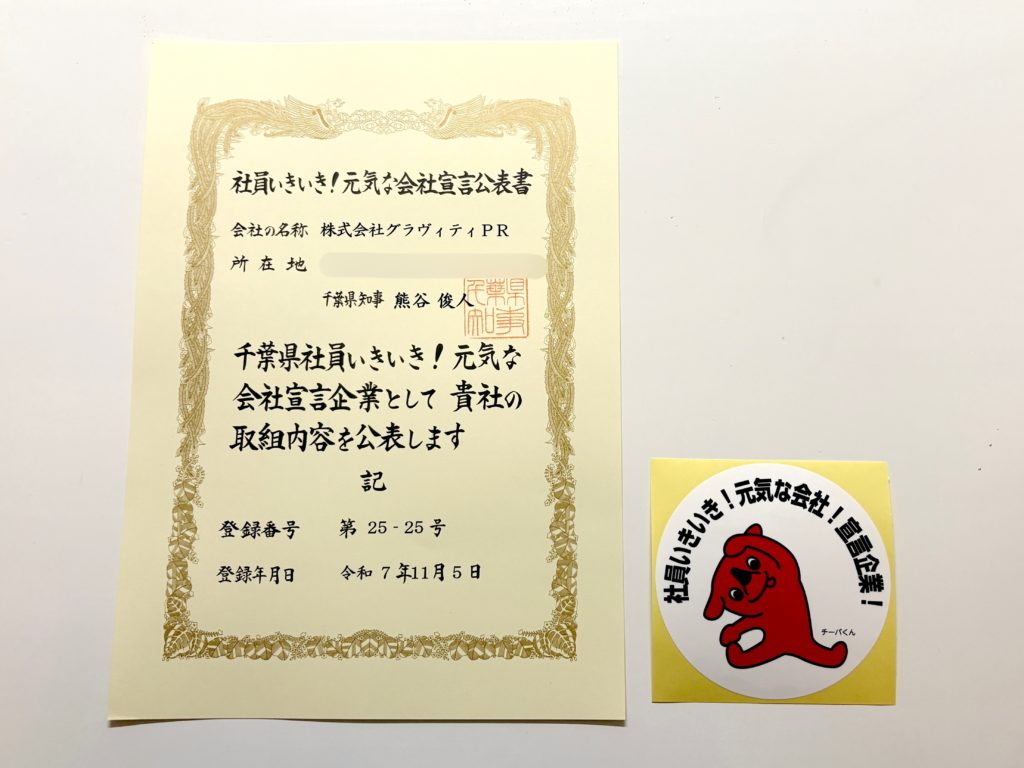 社員いきいき！元気な会社宣言公表書
会社の名称 株式会社グラヴィティＰＲ
所在地
千葉県知事 熊谷 俊人
千葉県知事
千葉県社員いきいき！元気な
会社宣言企業として 貴社の
取組内容を公表します
記
登録番号 第 25 - 25 号
登録年月日 令和 7 年11月 5 日
社員いきいき！元気な会社！宣言企業！
チーバくん